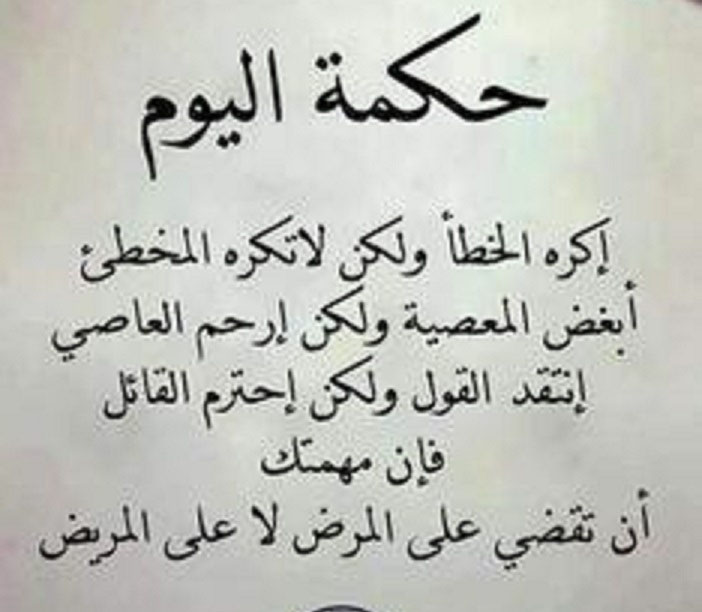 حكمة اليوم
إكره الخطأ ولكن لاتكره المخطئ
أبغض المعصية ولكن إرحم العاصي
إنتقد القول ولكن إحترم القائل
فإن مهمتك
أن تقضي على المرض لا على المريض